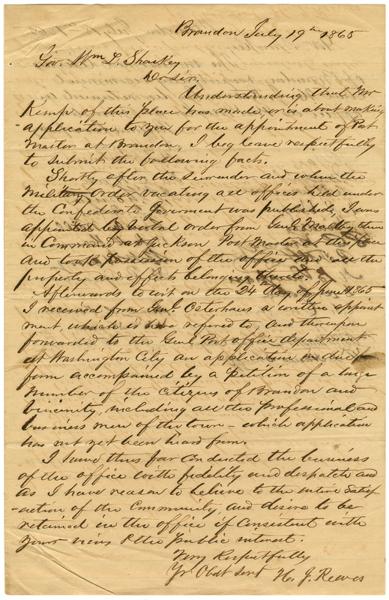 Brandon July 19th 1865
Gov. Wm L. Sharkey
Dr Sir.
Understanding that Mr
Kemp of this place has made, or is about making
application to you for the appointment of Post
Master at Brandon, I beg leave respectfully
to submit the following facts.
Shortly after the surrender and when the
Military order vacating all offices held under
the Confederate Goverment was published, I was
appointed by verbal order from Genl then
in Command at Jackson Post Master at this place
and took possession of the office and all the
property and effects belonging thereto.
Afterwards to wit on the 24 day of June 1865
I received from Genl Osterhaus a written appoint
ment which is here refered to, and thereupon
forwarded to the Genl Post office department
at Washington City an application in due
form accompanied by a Petition of a large
number of the citizens of Brandon and
vicinity, including all the Professional and
business men of the town – which application
has not yet been heard from.
I have thus far conducted the business
of the office with fidelity and despatch and
as I have reason to believe to the entire Satisf
action of the Community, and desire to be
retained in the office if Consistent with
your views & the public interest.
Very Respectfully
Yr Obdt Servt H. J. Reeves